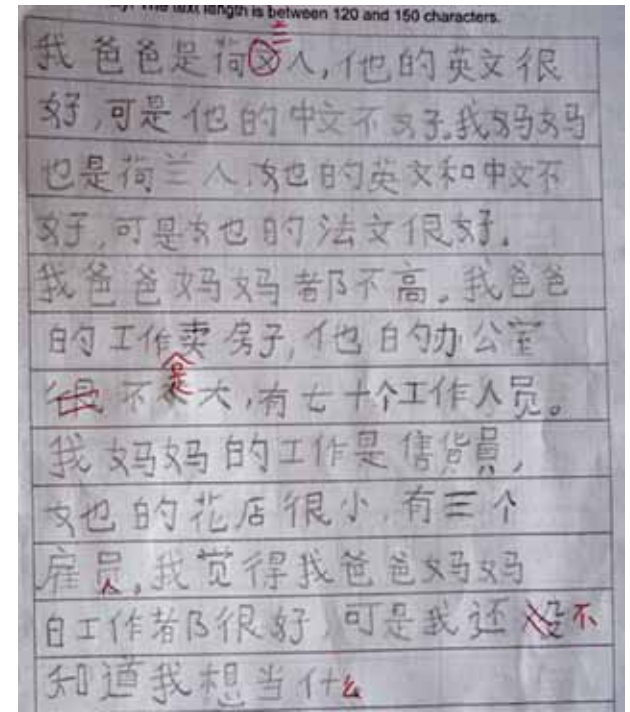 The text length is between 120 and 150 characters.
三
我爸爸是荷文人,他的英文很
好,可是他的中文不好.我妈妈
也是荷兰人.她的英文和中文不
好,可是她的法文很好.
我爸爸妈妈都不高。我爸爸
的工作卖房子,他的办公室
是
很不大,有七十个工作人员。
我妈妈的工作是售货員,
她的花店很小.有三个
雇员,我觉得我爸爸妈妈
白工作都很好,可是我还没不
知道我想当什么